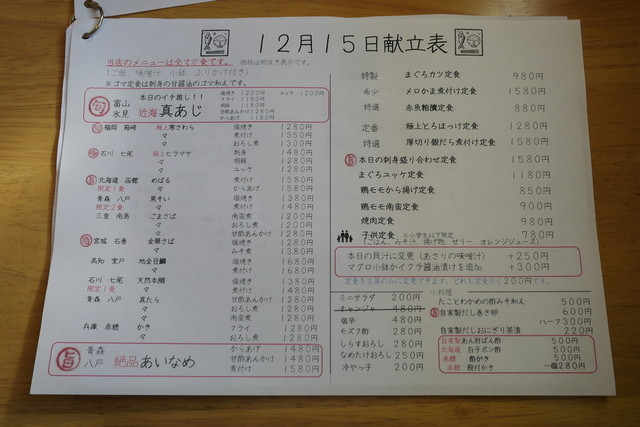 12月15日献立表
当店のメニューは全て定食です。 価格は税抜き表示です。
(ご飯、味噌汁、小鉢、ふりかけ付き)
※ゴマ定食は刺身の甘醤油のゴマ和えです。
旬 富山 氷見 本日のイチ推し!! 近海 真あじ
塩焼き 1200円 ユッケ 1200円
フライ 1180円
胡麻 1180円
甘酢あんかけ 1280円
からあげ 1180円
福岡 箱崎 極上寒さわら 塩焼き 1280円
々 煮付け 1350円
々 おろし煮 1300円
石川 七尾 極上ヒラマサ 刺身 1480円
々 胡麻 1280円
々 ユッケ 1280円
北海道 函館 めばる 塩焼き 1480円
限定1食 々 煮付け 1580円
々 からあげ 1500円
青森 八戸 黒そい 塩焼き 1380円
限定2食 々 煮付け 1480円
三重 南島 ごまさば 南蛮煮 1200円
々 おろし煮 1200円
々 甘酢あんかけ 1280円
宮城 石巻 金華さば 塩焼き 1280円
々 みそ煮 1380円
高知 室戸 地金目鯛 塩焼き 1680円
々 煮付け 1680円
石川 七尾 天然本鯛 塩焼き 1380円
限定1食 々 煮付け 1480円
青森 八戸 真たら 甘酢あんかけ 1280円
々 おろし煮 1280円
々 南蛮煮 1280円
兵庫 赤穂 かき フライ 1280円
々 おろし煮 1280円
旨 青森 八戸 絶品 あいなめ
からあげ 1480円
甘酢あんかけ 1480円
煮付け 1580円
特製 まぐろカツ定食 980円
希少 メロかま煮付け定食 1580円
特選 赤魚粕漬け定食 880円
定番 極上とろほっけ定食 1280円
特選 厚切り銀だら煮付け定食 1580円
本日の刺身盛り合わせ定食 1580円
まぐろユッケ定食 1180円
鶏モモから揚げ定食 850円
鶏モモ南蛮定食 900円
焼肉定食 980円
子供定食 ※小学生以下限定 780円
(ごはん、みそ汁、揚げ物、ゼリー、オレンジジュース)
本日の貝汁に変更(あさりの味噌汁) +250円
マグロ小鉢かイクラ醤油漬けを追加 +300円
定食を玄米のみに変更できます。どれも定食引く200円です。
ミニサラダ 200円
チャンジャ 480円
塩辛 480円
モズク酢 280円
しらすおろし 280円
なめたけおろし 250円
冷やっこ 200円
小料理
たことわかめの酢みそ和え 500円
自家製だし巻き卵 600円
ハーフ 300円
自家製だしおにぎり茶漬 220円
自家製あん肝ぽん酢 500円
北海道 白子ポン酢 500円
赤穂 酢がき 500円
赤穂 殻付かき 一個280円